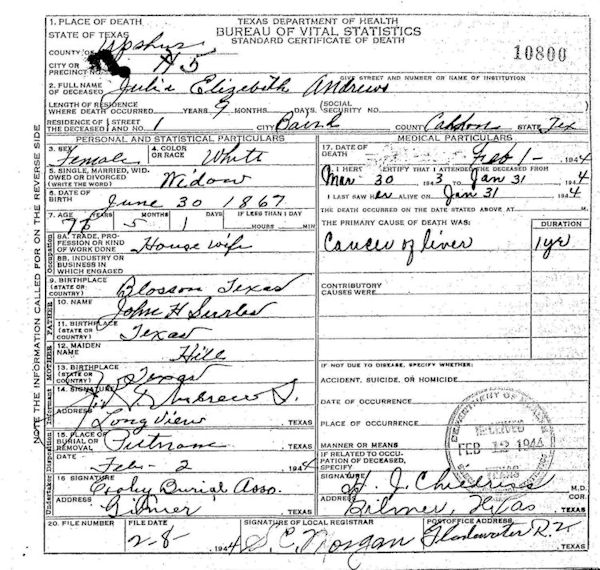 1. PLACE OF DEATH
TEXAS DEPARTMENT OF HEALTH
BUREAU OF VITAL STATISTICS
STANDARD CERTIFICATE OF DEATH
STATE OF TEXAS
COUNTY OF Upshur
10800
CITY OR PRECINCT NO. # 5
GIVE STREET AND NUMBER OR NAME OF INSTITUTION
2. FULL NAME OF DECEASED Julia Elizabeth Andrews
LENGTH OF RESIDENCE WHERE DEATH OCCURRED YEARS 9 MONTHS DAYS. (SOCIAL SECURITY NO.
RESIDENCE OF THE DECEASED STREET AND NO. 1 CITY Baird COUNTY STATE Tex
PERSONAL AND STATISTICAL PARTICULARS
3. SEX Female 4. COLOR OR RACE White
5. SINGLE, MARRIED, WIDOWED OR DIVORCED (WRITE THE WORD) Widow
6. DATE OF BIRTH June 30 1867
7. AGE YEARS MONTHS DAYS IF LESS THAN 1 DAY
5 1 HOURS MIN.
8A. TRADE, PROFESSION OR KIND OF WORK DONE House Wife
8B. INDUSTRY OR BUSINESS IN WHICH ENGAGED
9. BIRTHPLACE (STATE OR COUNTRY) Blosson Texas
10. NAME John H
11. BIRTHPLACE (STATE OR COUNTRY) Texas
12. MAIDEN NAME Hill
13. BIRTHPLACE (STATE OR COUNTRY) Texas
14. SIGNATURE
ADDRESS Longview TEXAS
15. PLACE OF BURIAL OR REMOVAL Putnam TEXAS
DATE - Feb - 2 1944
16. SIGNATURE Burial Asso.
ADDRESS Gilmer TEXAS
Occupation
FATHER
MOTHER
Informant
Disposition
Undertaker
MEDICAL PARTICULARS
17. DATE OF DEATH Feb 1 - 1944
18. I HEREBY CERTIFY THAT I ATTENDED THE DECEASED FROM
Mar 30 1943 TO Jan 31 1944
I LAST SAW her ALIVE ON Jan 31 1944
THE DEATH OCCURRED ON THE DATE STATED ABOVE AT M.
THE PRIMARY CAUSE OF DEATH WAS: DURATION
Cancer of liver 1 yr
CONTRIBUTORY CAUSES WERE:
IF NOT DUE TO DISEASE, SPECIFY WHETHER:
ACCIDENT, SUICIDE, OR HOMICIDE
DATE OF OCCURRENCE
PLACE OF OCCURRENCE
MANNER OR MEANS
IF RELATED TO OCCUPATION OF DECEASED, SPECIFY
DEPARTMENT OF HEALTH
RECEIVED
FEB 12 1944
TEXAS
SIGNATURE M.D.
ADDRESS Gilmer, Texas COR. TEXAS
20. FILE NUMBER FILE DATE 2-8- 1944 SIGNATURE OF LOCAL REGISTRAR S. C. Morgan POSTOFFICE ADDRESS Gladewater R. 2. TEXAS
NOTE THE INFORMATION CALLED FOR ON THE REVERSE SIDE